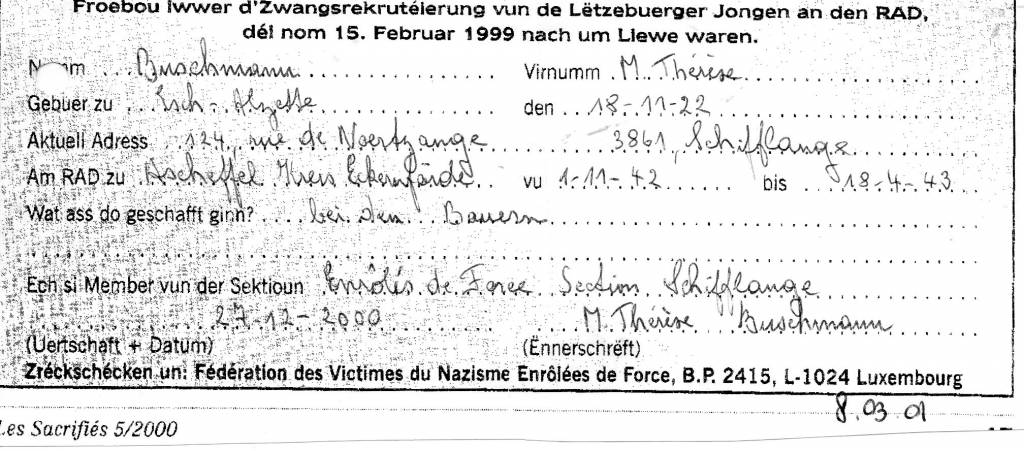 Froebou iwwer d'Zwangsrekrutéierung vun de Lëtzebuerger Jongen an den RAD,
déi nom 15. Februar 1999 nach um Liewe waren.
Numm Buschmann Virnumm M. Thérèse
Gebuer zu Esch-Alzette den 18-11-22
Aktuell Adress 124, rue de Noertzange 3861, Schifflange
Am RAD zu Ascheffel Kreis Eckernförde vu 1-11-42 bis 18-4-43
Wat ass do geschafft ginn? bei den Bauern
Ech si Member vun der Sektioun Enrôlés de Force Section Schifflange
27-12-2000 M. Thérèse Buschmann
(Uertschaft + Datum) (Ënnerschrëft)
Zréckschécken un: Fédération des Victimes du Nazisme Enrôlées de Force, B.P. 2415, L-1024 Luxembourg
8.03 01
Les Sacrifiés 5/2000